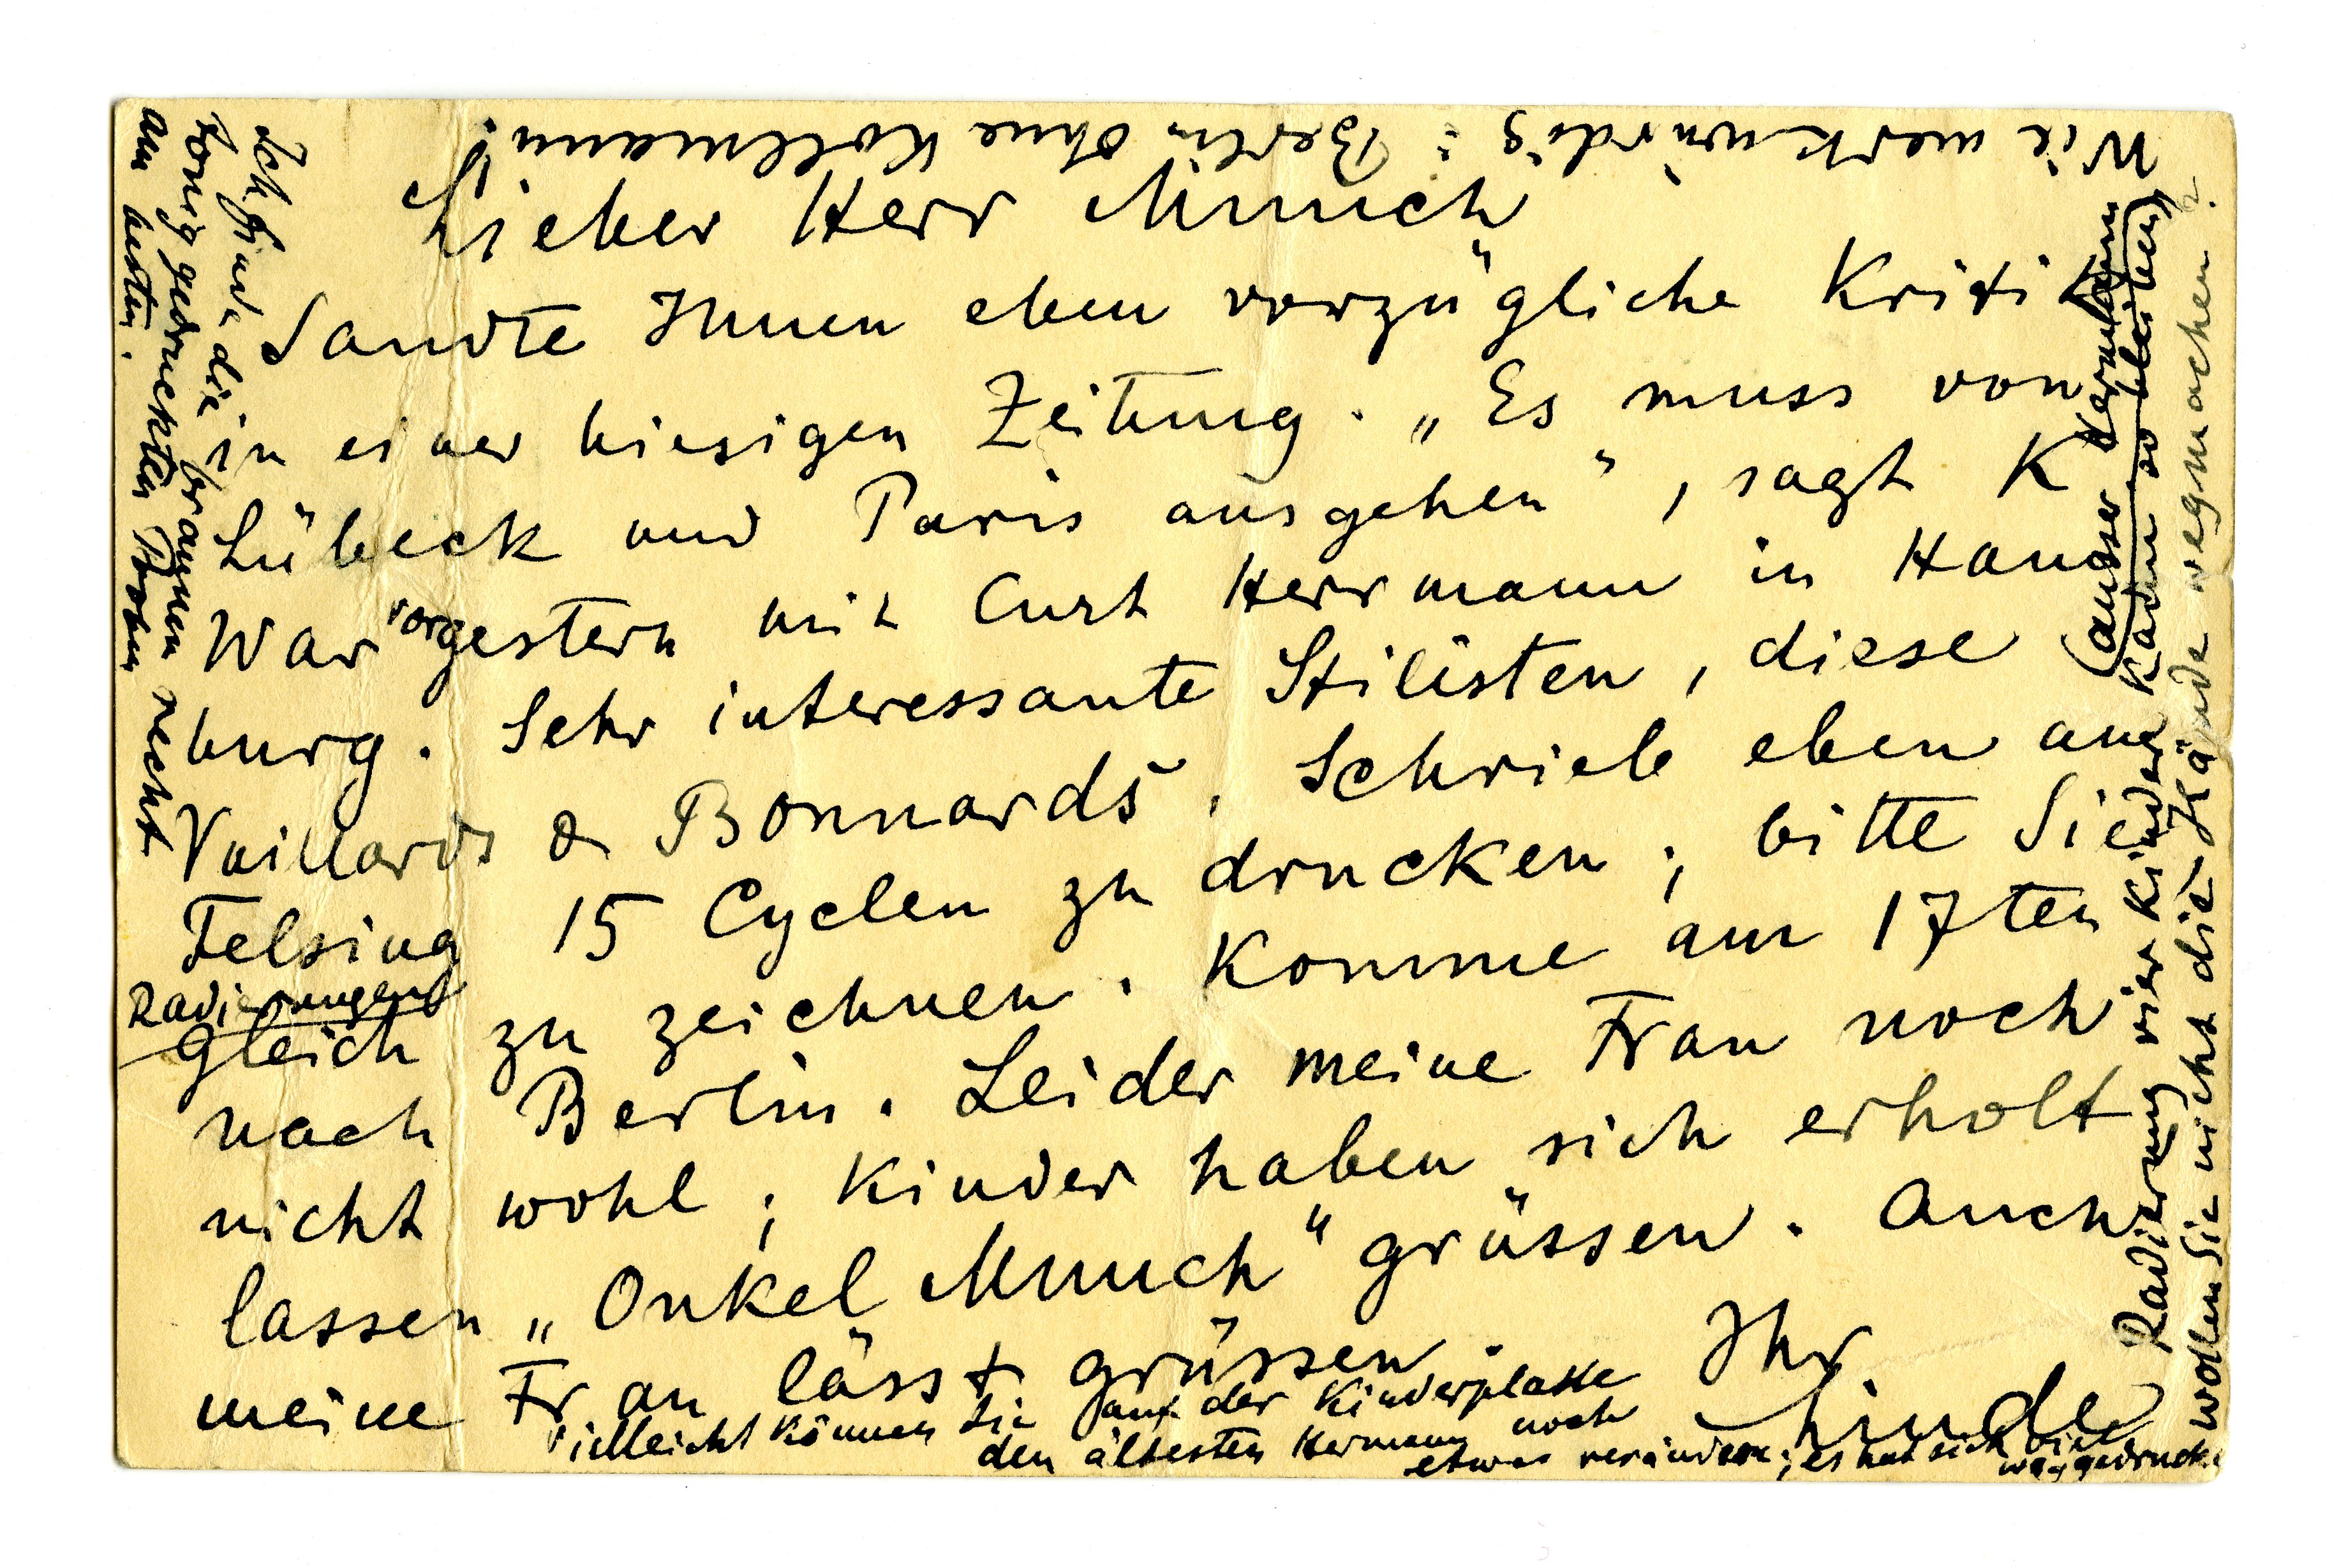 Wie merkwürdig: Berlin ohne Kollmann!
Lieber Herr Munch
Sandte Ihnen eben vorzügliche Kritik
in einer hiesigen Zeitung. „Es muss von
Lübeck und Paris ausgehen", sagt K
War vorgestern mit Curt Herrmann in Ham
burg. Sehr interessante Stilisten, diese
Vuillards & Bonnards. Schrieb eben an
Felsing 15 Cyclen zu drucken; bitte Sie
Radierungen
gleich zu zeichnen. Komme am 17ten
nach Berlin. Leider meine Frau noch
nicht wohl; Kinder haben sich erholt
lassen „Onkel Munch" grüssen. Auch
meine Frau lässt grüssen. Ihr
Linde
vielleicht können Sie auf der Kinderplatte
den ältesten Hermann noch
etwas verändern; es hat sich viel
weggedruckt
Radierung vier Kinder kann so bleiben
(ausser Hermann)
wollen Sie nicht die Hände wegmachen?
Ich finde die braunen recht
tonig gedruckten Proben
am besten.